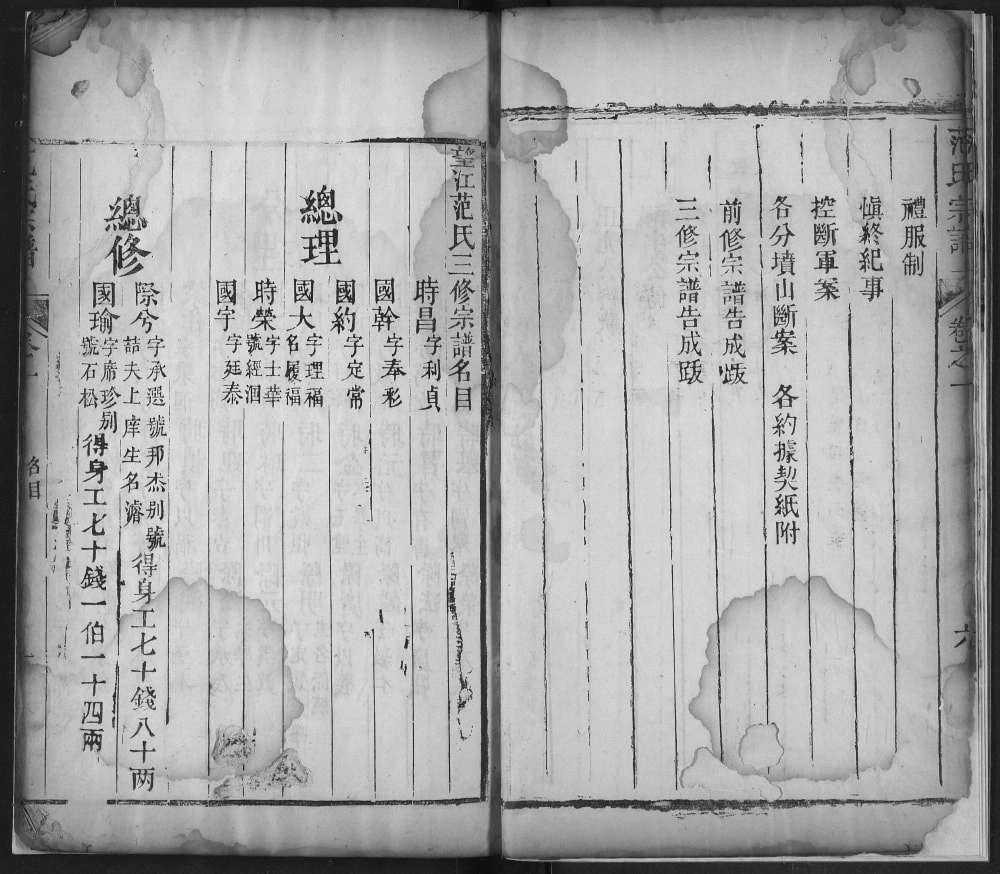 范氏宗譜
卷之一
六
禮服制
慎終紀事
控斷軍案
各分墳山斷案 各約據契紙附
前修宗譜告成跋
三修宗譜告成跋
望江范氏三修宗譜名目
總理
時昌字利貞
國幹字奉彩
國約字定常
國大字理福名履福
時榮字士華號經涸
國字字廷泰
總修
際兮字承選號邦杰别號詰夫上庠生名濬 得身工七十錢八十两
國瑜字席珍别號石松 得身工七十錢一伯一十四兩
名目